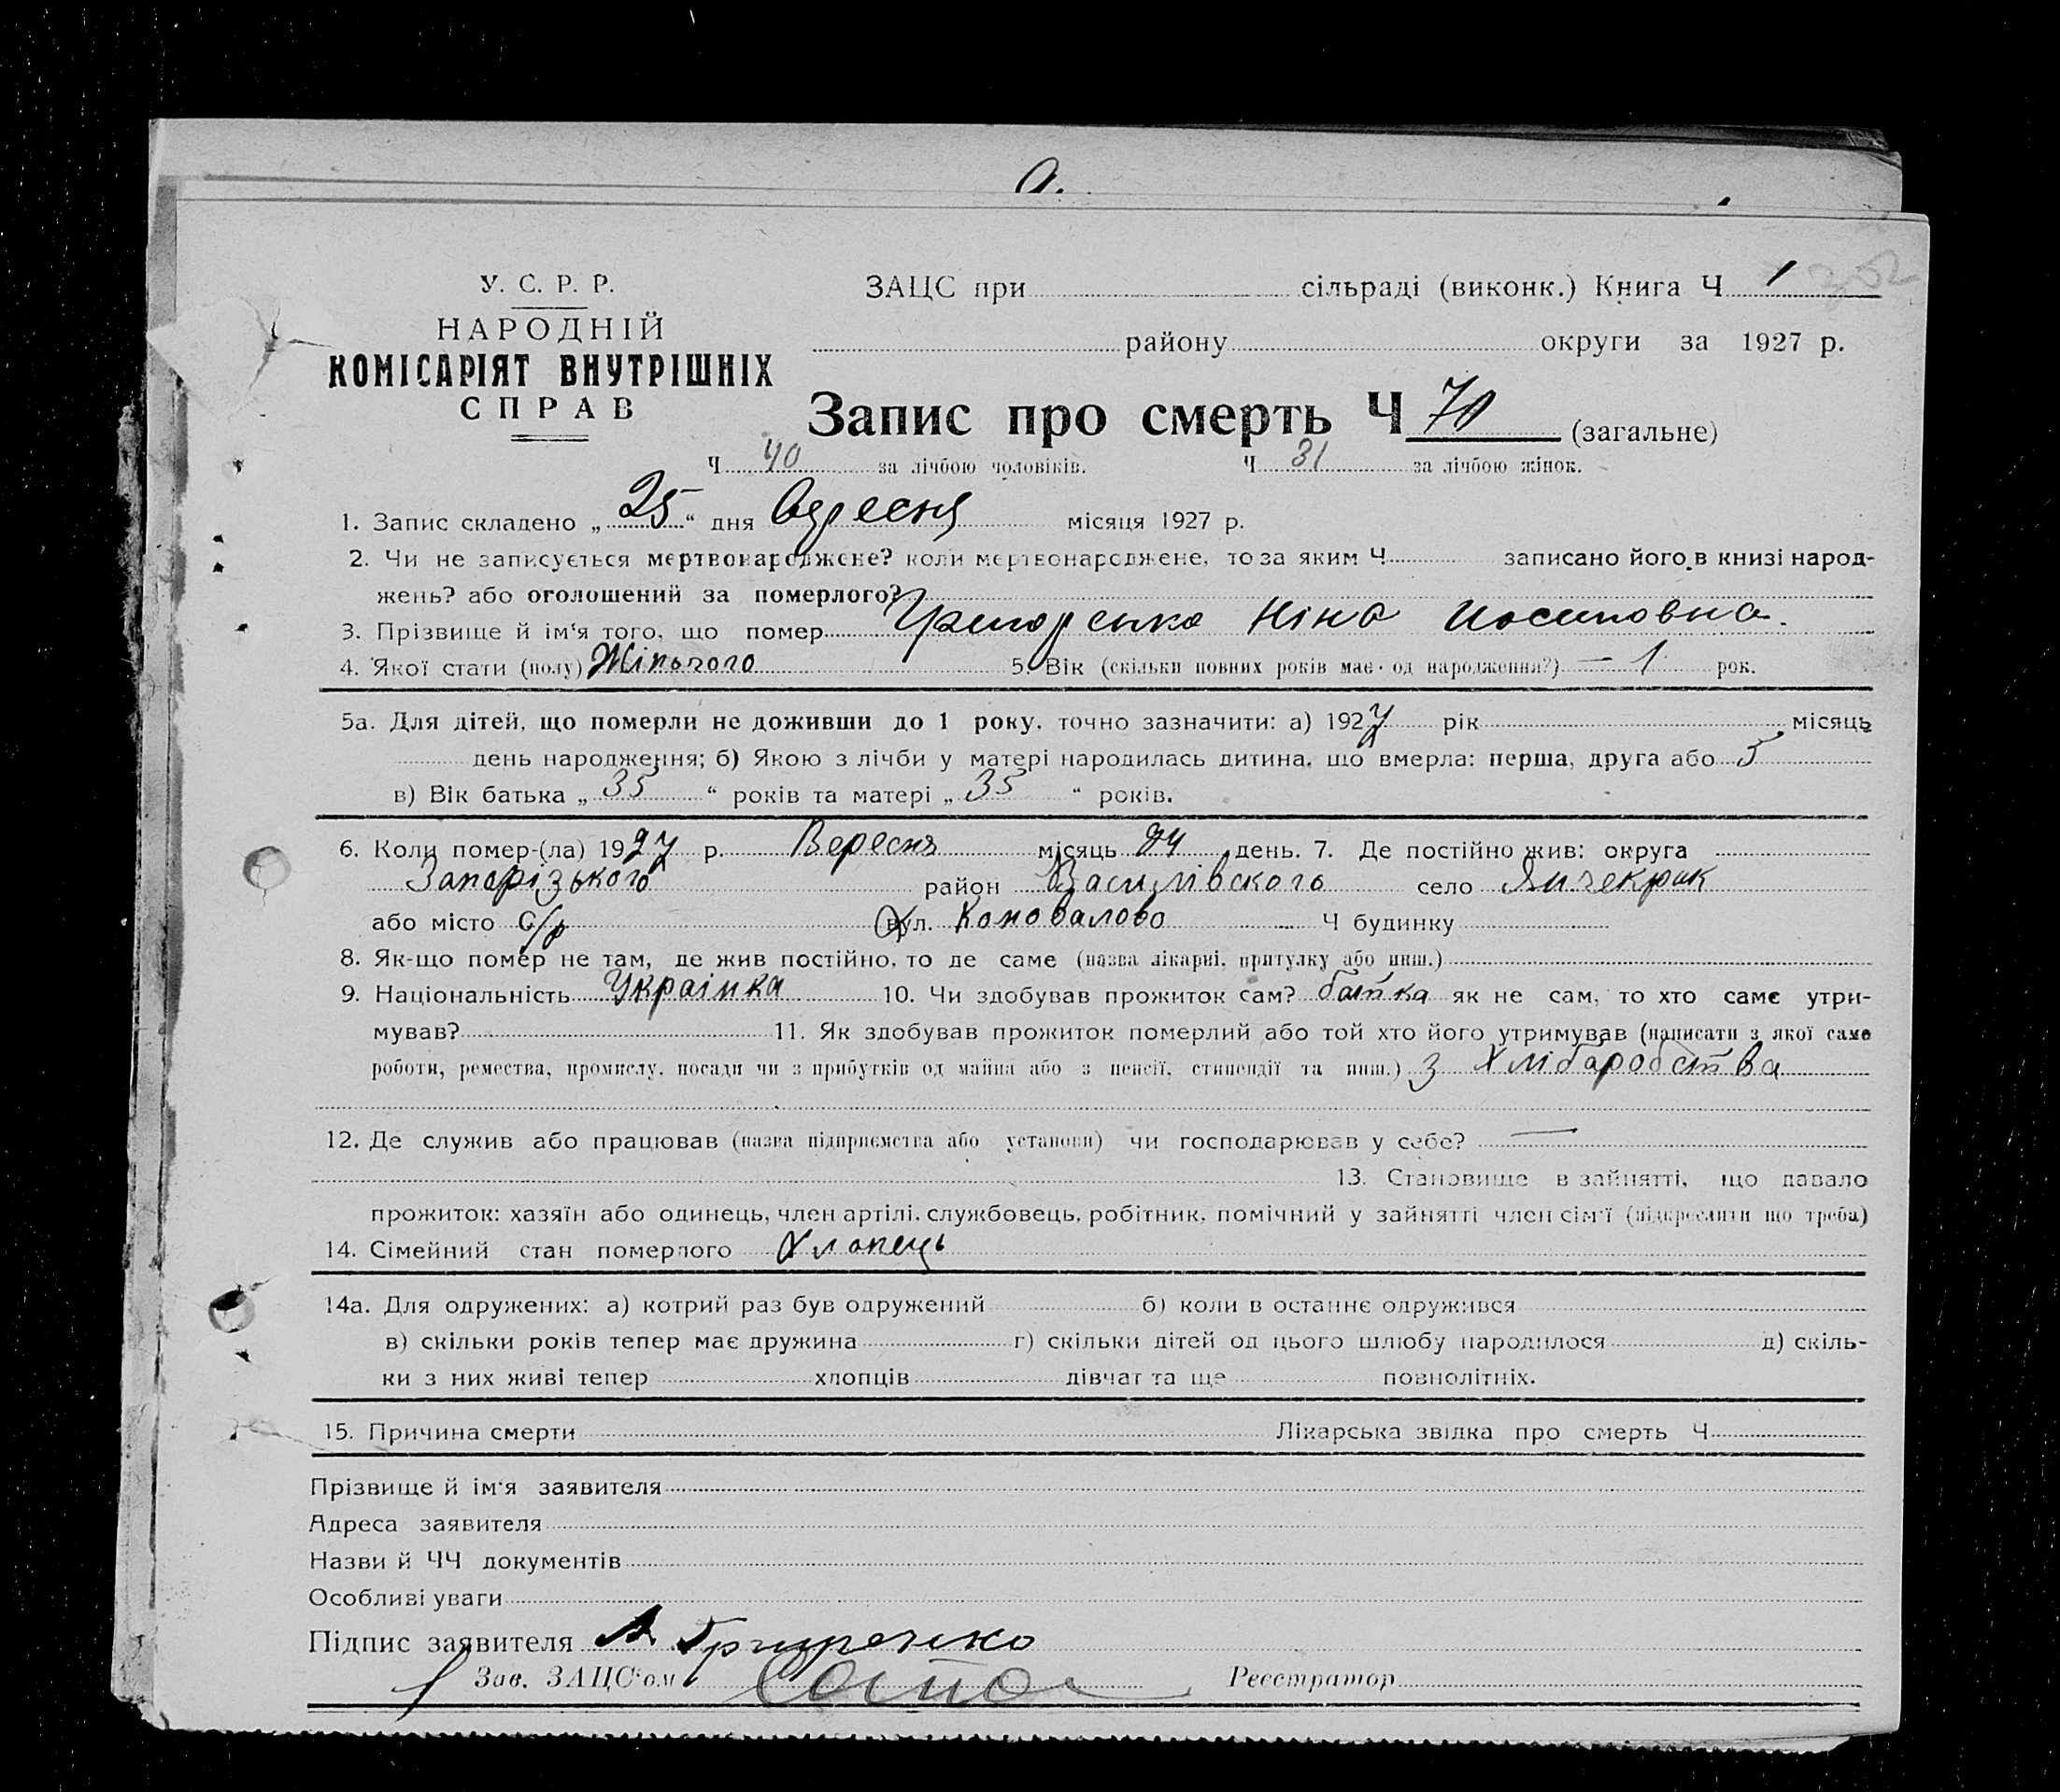 У. С. Р. Р.
НАРОДНІЙ
КОМІСАРІЯТ ВНУТРІШНІХ
СПРАВ
ЗАЦС при сільраді (виконк.) Книга Ч 1
району округи за 1927 р.
Запис про смерть Ч 70 (загальне)
Ч 40 за лічбою чоловіків. Ч 31 за лічбою жінок.
1. Запис складено „25“ дня Вересня місяця 1927 р.
2. Чи не записується мертвонароджене? коли мертвонароджене, то за яким Ч записано його в книзі народ-
жень? або оголошений за померлого?
3. Прізвище й ім‘я того, що помер Ніна Иосиповна.
4. Якої стати (полу) Жіночого 5. Вік (скільки повних років має од народження?) — 1 рок.
5а. Для дітей, що померли не доживши до 1 року, точно зазначити: а) 1927 рік місяць
день народження; б) Якою з лічби у матері народилась дитина, що вмерла: перша, друга або 5
в) Вік батька „35“ років та матері „35“ років.
6. Коли помер-(ла) 1927 р. Вересня місяць 24 день. 7. Де постійно жив: округа
Запорізького район Василівского село Янчекрак
або місто С/р вул. Коновалово Ч будинку
8. Як-що помер не там, де жив постійно, то де саме (назва лікарні, притулку або инш.)
9. Національність Українка 10. Чи здобував прожиток сам? батка як не сам, то хто саме утри-
мував? 11. Як здобував прожиток померлий або той хто його утримував (написати з якої саме
роботи, ремества, промислу, посади чи з прибутків од майна або з пенсії, стипендії та инш.) З хлібаробства
12. Де служив або працював (назва підприємства або установи) чи господарював у себе? —
13. Становище в зайнятті, що давало
прожиток: хазяїн або одинець, член артілі, службовець, робітник, помічний у зайнятті член сім‘ї (підкреслити що треба)
14. Сімейний стан померлого Хлопець
14а. Для одружених: а) котрий раз був одружений б) коли в останнє одружився
в) скільки років тепер має дружина г) скільки дітей од цього шлюбу народилося д) скіль-
ки з них живі тепер хлопців дівчат та ще повнолітніх.
15. Причина смерти Лікарська звідка про смерть Ч
Прізвище й ім‘я заявителя
Адреса заявителя
Назви й ЧЧ документів
Особливі уваги
Підпис заявителя
Зав. ЗАЦС‘ом Реєстратор